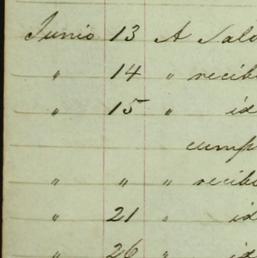 Junio 13 A Saldo
" 14 " recibo
" 15 " id
cump
" " " recibo
" 21 " id
" 26 " id